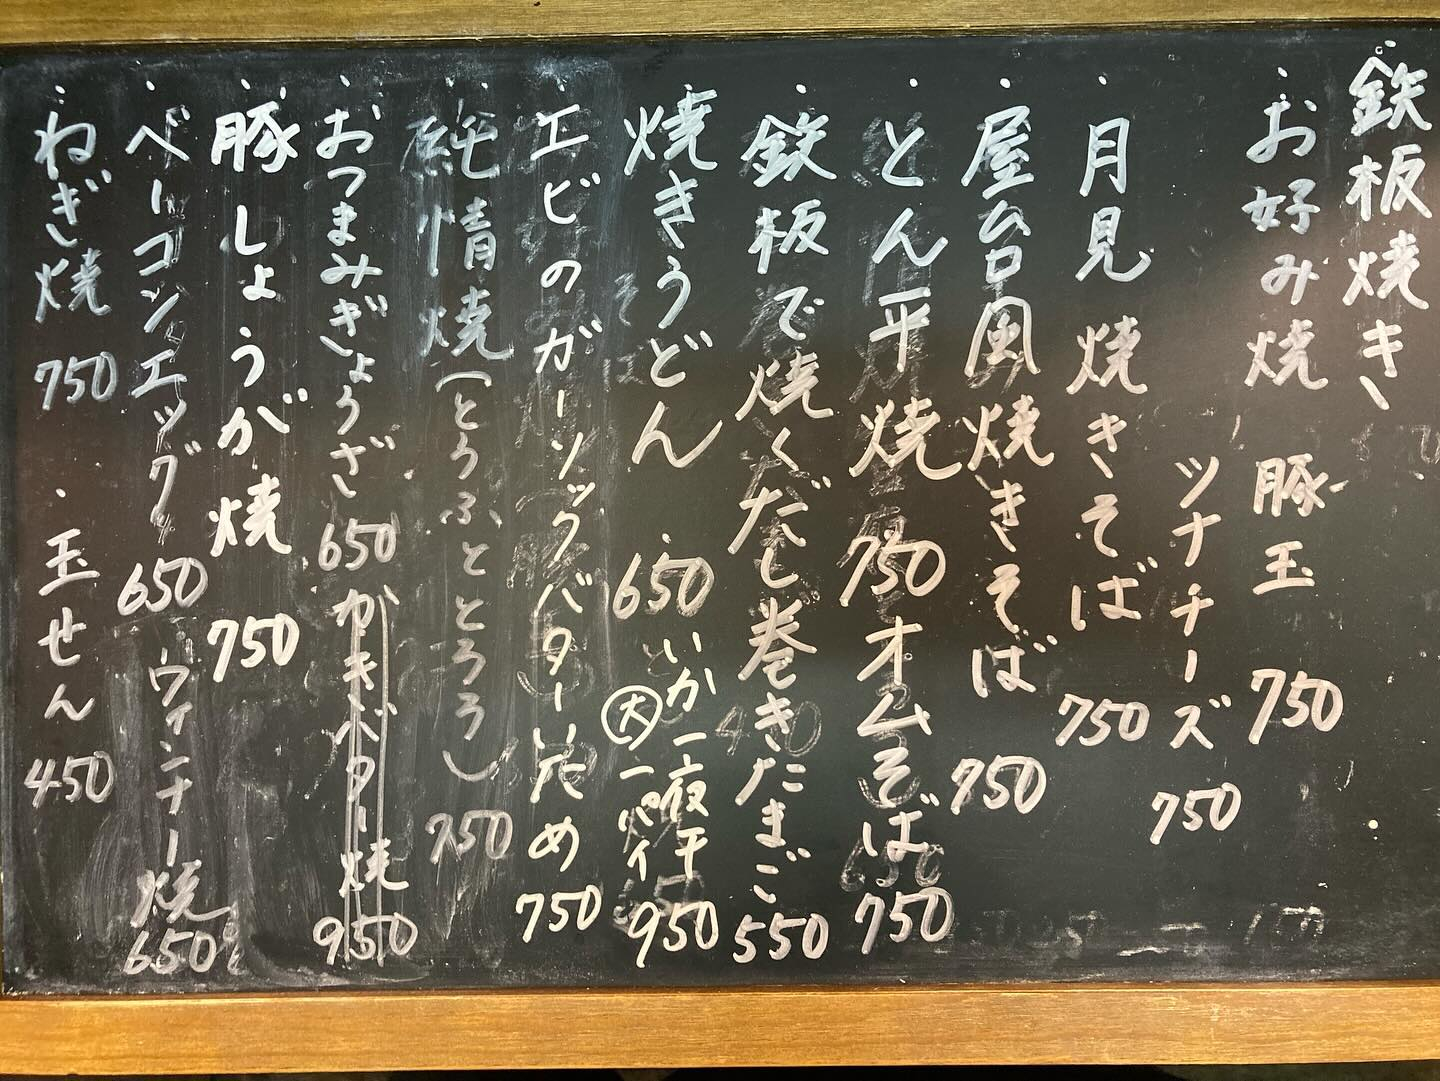 鉄板焼き
お好み焼 豚玉 750
ツナチーズ 750
月見焼きそば 750
屋台風焼きそば 750
とん平焼 750
オムそば 750
鉄板で焼くだし巻きたまご 550
焼きうどん 650
いか一夜干
大 一パイ 950
エビのガーリックバターいため 750
純情焼(とうふととろろ) 750
おつまみぎょうざ 650
かきバター焼 950
豚しょうが焼 750
ベーコンエッグ 650
ウィンナー焼 650
ねぎ焼 750
玉せん 450